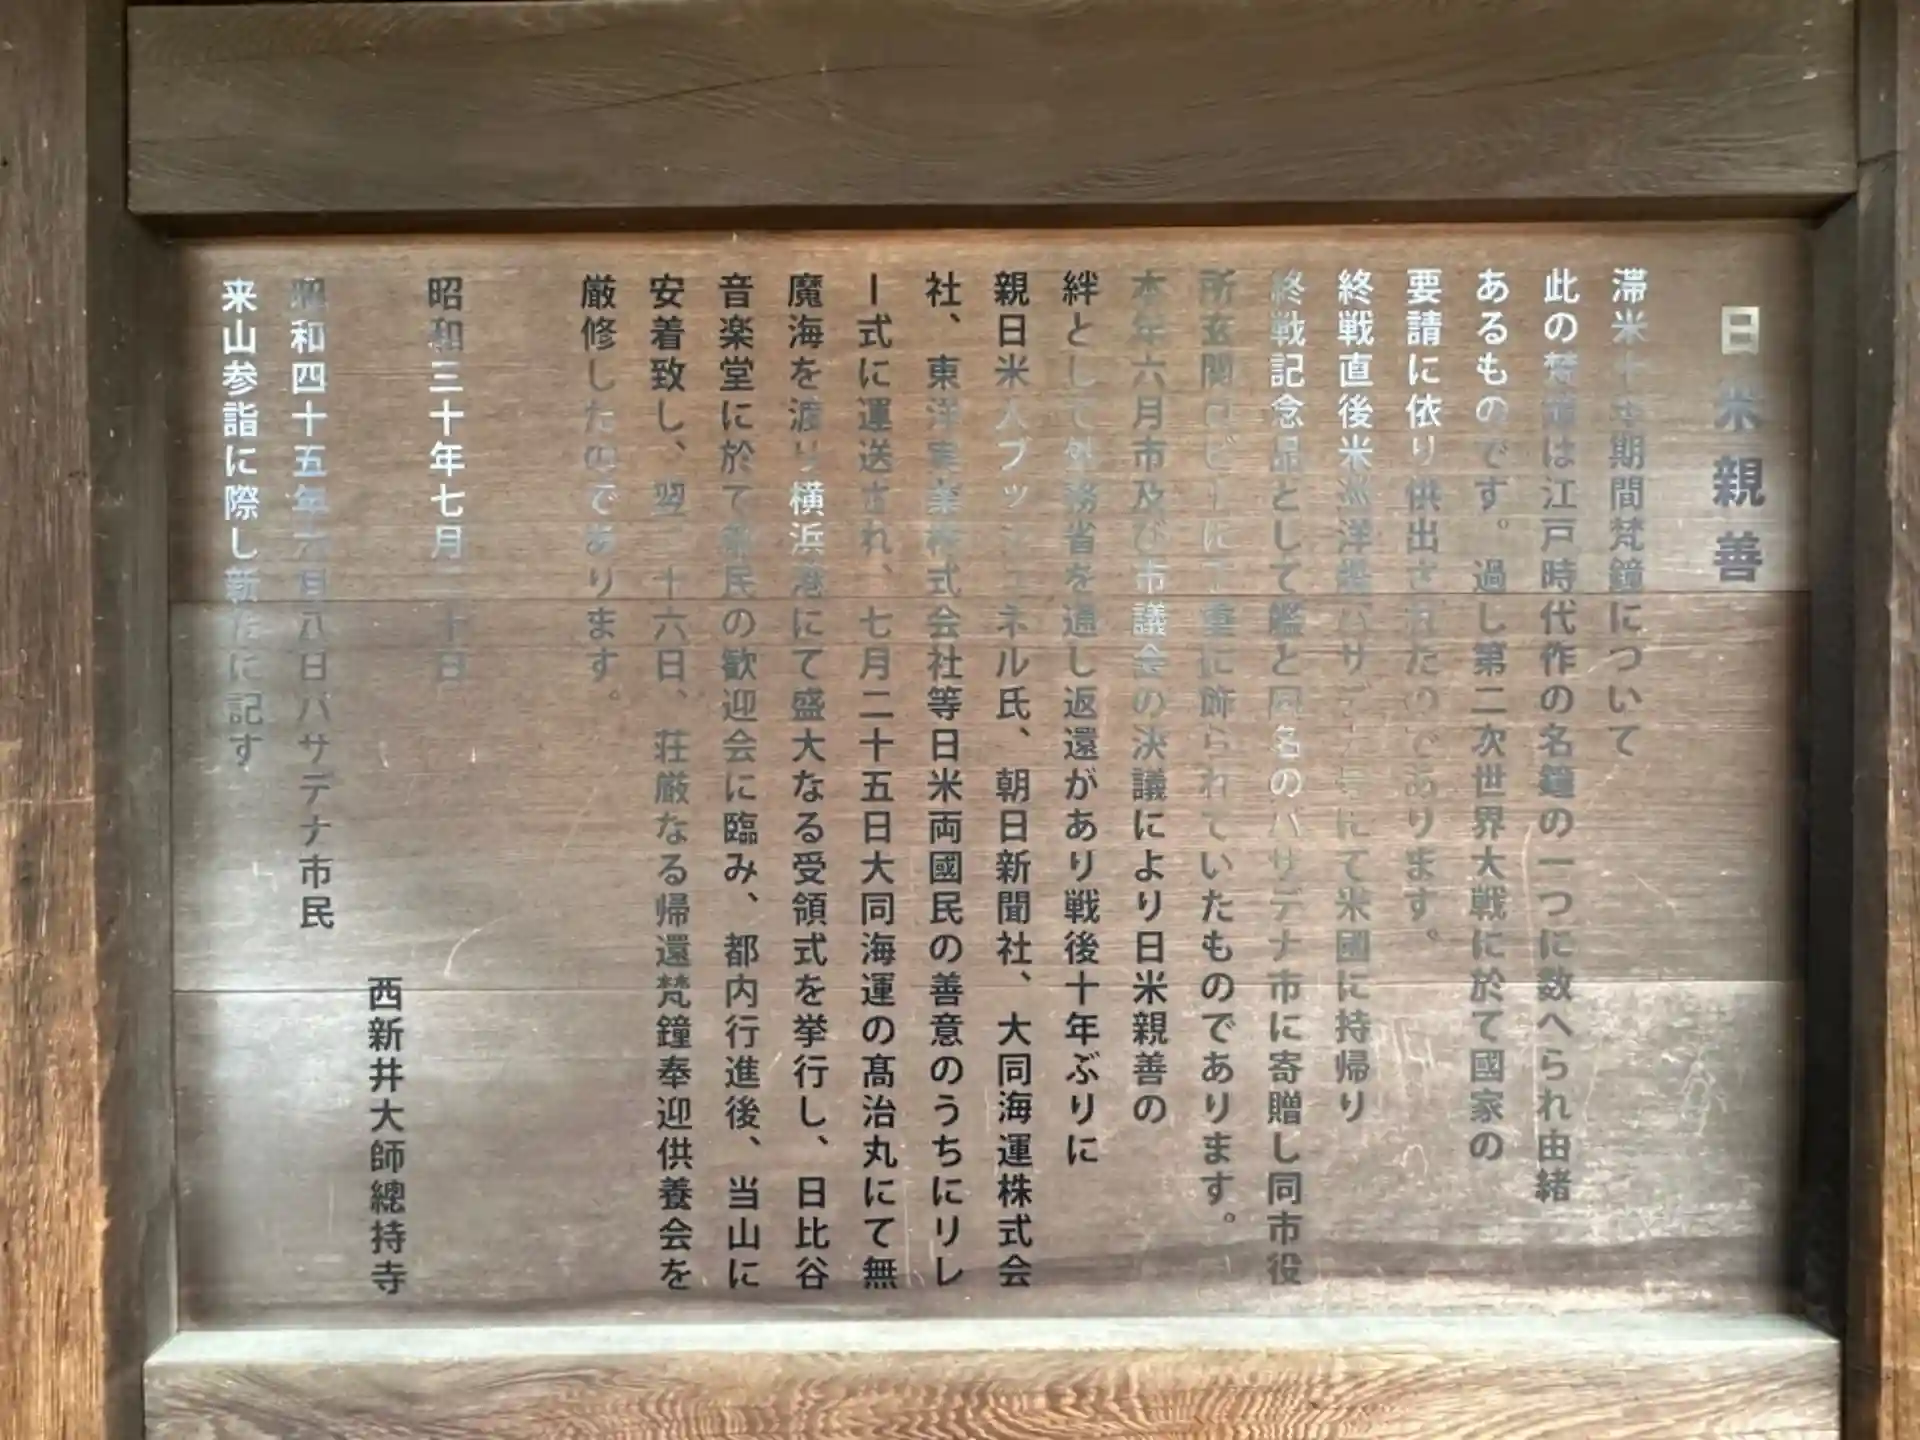 日米親善
滞米十ヶ年期間梵鐘について
此の梵鐘は江戸時代作の名鐘の一つに数へられ由緒
あるものです。過し第二次世界大戦に於て國家の
要請に依り供出されたのであります。
終戦直後米巡洋艦パサデナ号にて米國に持帰り
終戦記念品として艦と同名のパサデナ市に寄贈し同市役
所玄関ロビーに丁重に飾られていたものであります。
本年六月市及び市議会の決議により日米親善の
絆として外務省を通し返還があり戦後十年ぶりに
親日米人ブッシュネル氏、朝日新聞社、大同海運株式会
社、東洋実業株式会社等日米両國民の善意のうちにリレ
ー式に運送され、七月二十五日大同海運の髙治丸にて無
魔海を渡り横浜港にて盛大なる受領式を挙行し、日比谷
音楽堂に於て都民の歓迎会に臨み、都内行進後、当山に
安着致し、翌二十六日、荘厳なる帰還梵鐘奉迎供養会を
厳修したのであります。
昭和三十年七月二十日
西新井大師總持寺
昭和四十五年六月八日パサデナ市民
来山参詣に際し新たに記す